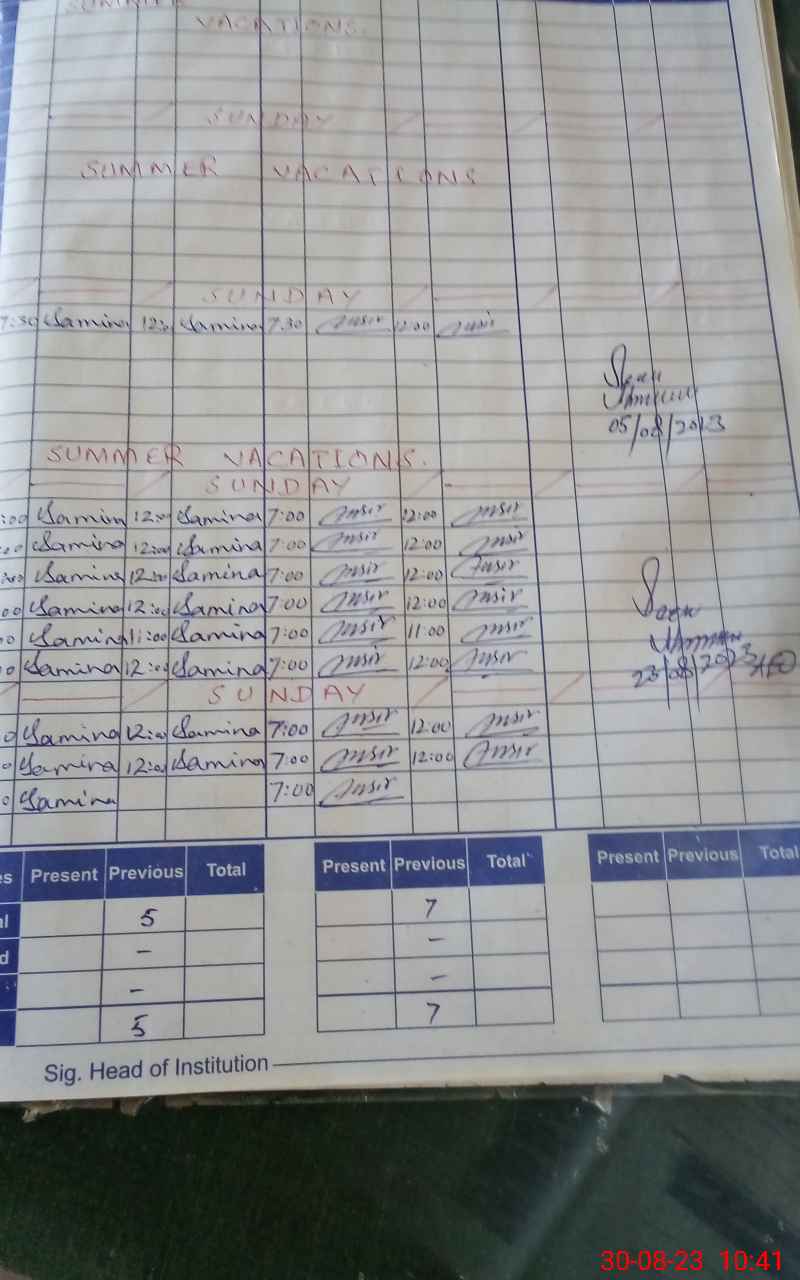 SUMMER
VACATIONS.
SUNDAY
SUMMER VACATIONS
SUNDAY
7:30 Samina 12:0 Samina 7.30 Insir 12:00 Insir
05/08/2023
SUMMER VACATIONS.
SUNDAY
:00 Samina 12:00 Samina 7:00 Insir 12:00 Insir
:00 Samina 12:00 Samina 7:00 Insir 12:00 Insir
:00 Samina 12:00 Samina 7:00 Insir 12:00 Insir
00 Samina 12:00 Samina 7:00 Insir 12:00 Insir
0 Samina 11:00 Samina 7:00 Insir 11:00 Insir
0 Samina 12:00 Samina 7:00 Insir 12:00 Insir
23/08/2023
SUNDAY
0 Samina 12:00 Samina 7:00 Insir 12:00 Insir
0 Samina 12:00 Samina 7:00 Insir 12:00 Insir
0 Samina 7:00 Insir
es Present Previous Total Present Previous Total Present Previous Total
al 5 7
d - -
- -
5 7
Sig. Head of Institution
30-08-23 10:41